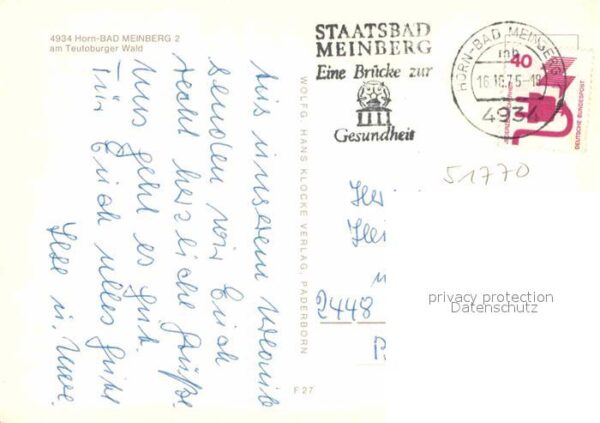 4934 Horn-BAD MEINBERG 2
am Teutoburger Wald
Aus unserem Urlaub
senden wir Euch
recht herzliche Grüße.
Uns geht es gut.
Für Euch alles Gute
Ilse u. Uwe.
WOLFG. HANS KLOCKE VERLAG, PADERBORN
F 27
STAATSBAD
MEINBERG
Eine Brücke zur
Gesundheit
HORN-BAD MEINBERG
4934
40
DEUTSCHE BUNDESPOST
51770
2448
privacy protection
Datenschutz